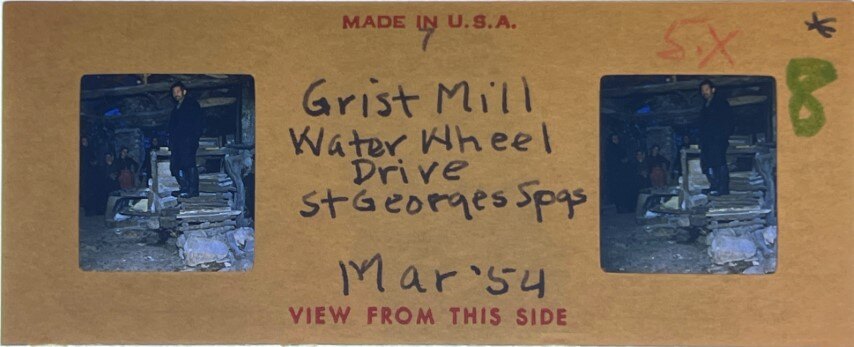 MADE IN U.S.A.
7
5.X
*
8
Grist Mill
Water Wheel
Drive
St Georges Spgs
Mar '54
VIEW FROM THIS SIDE